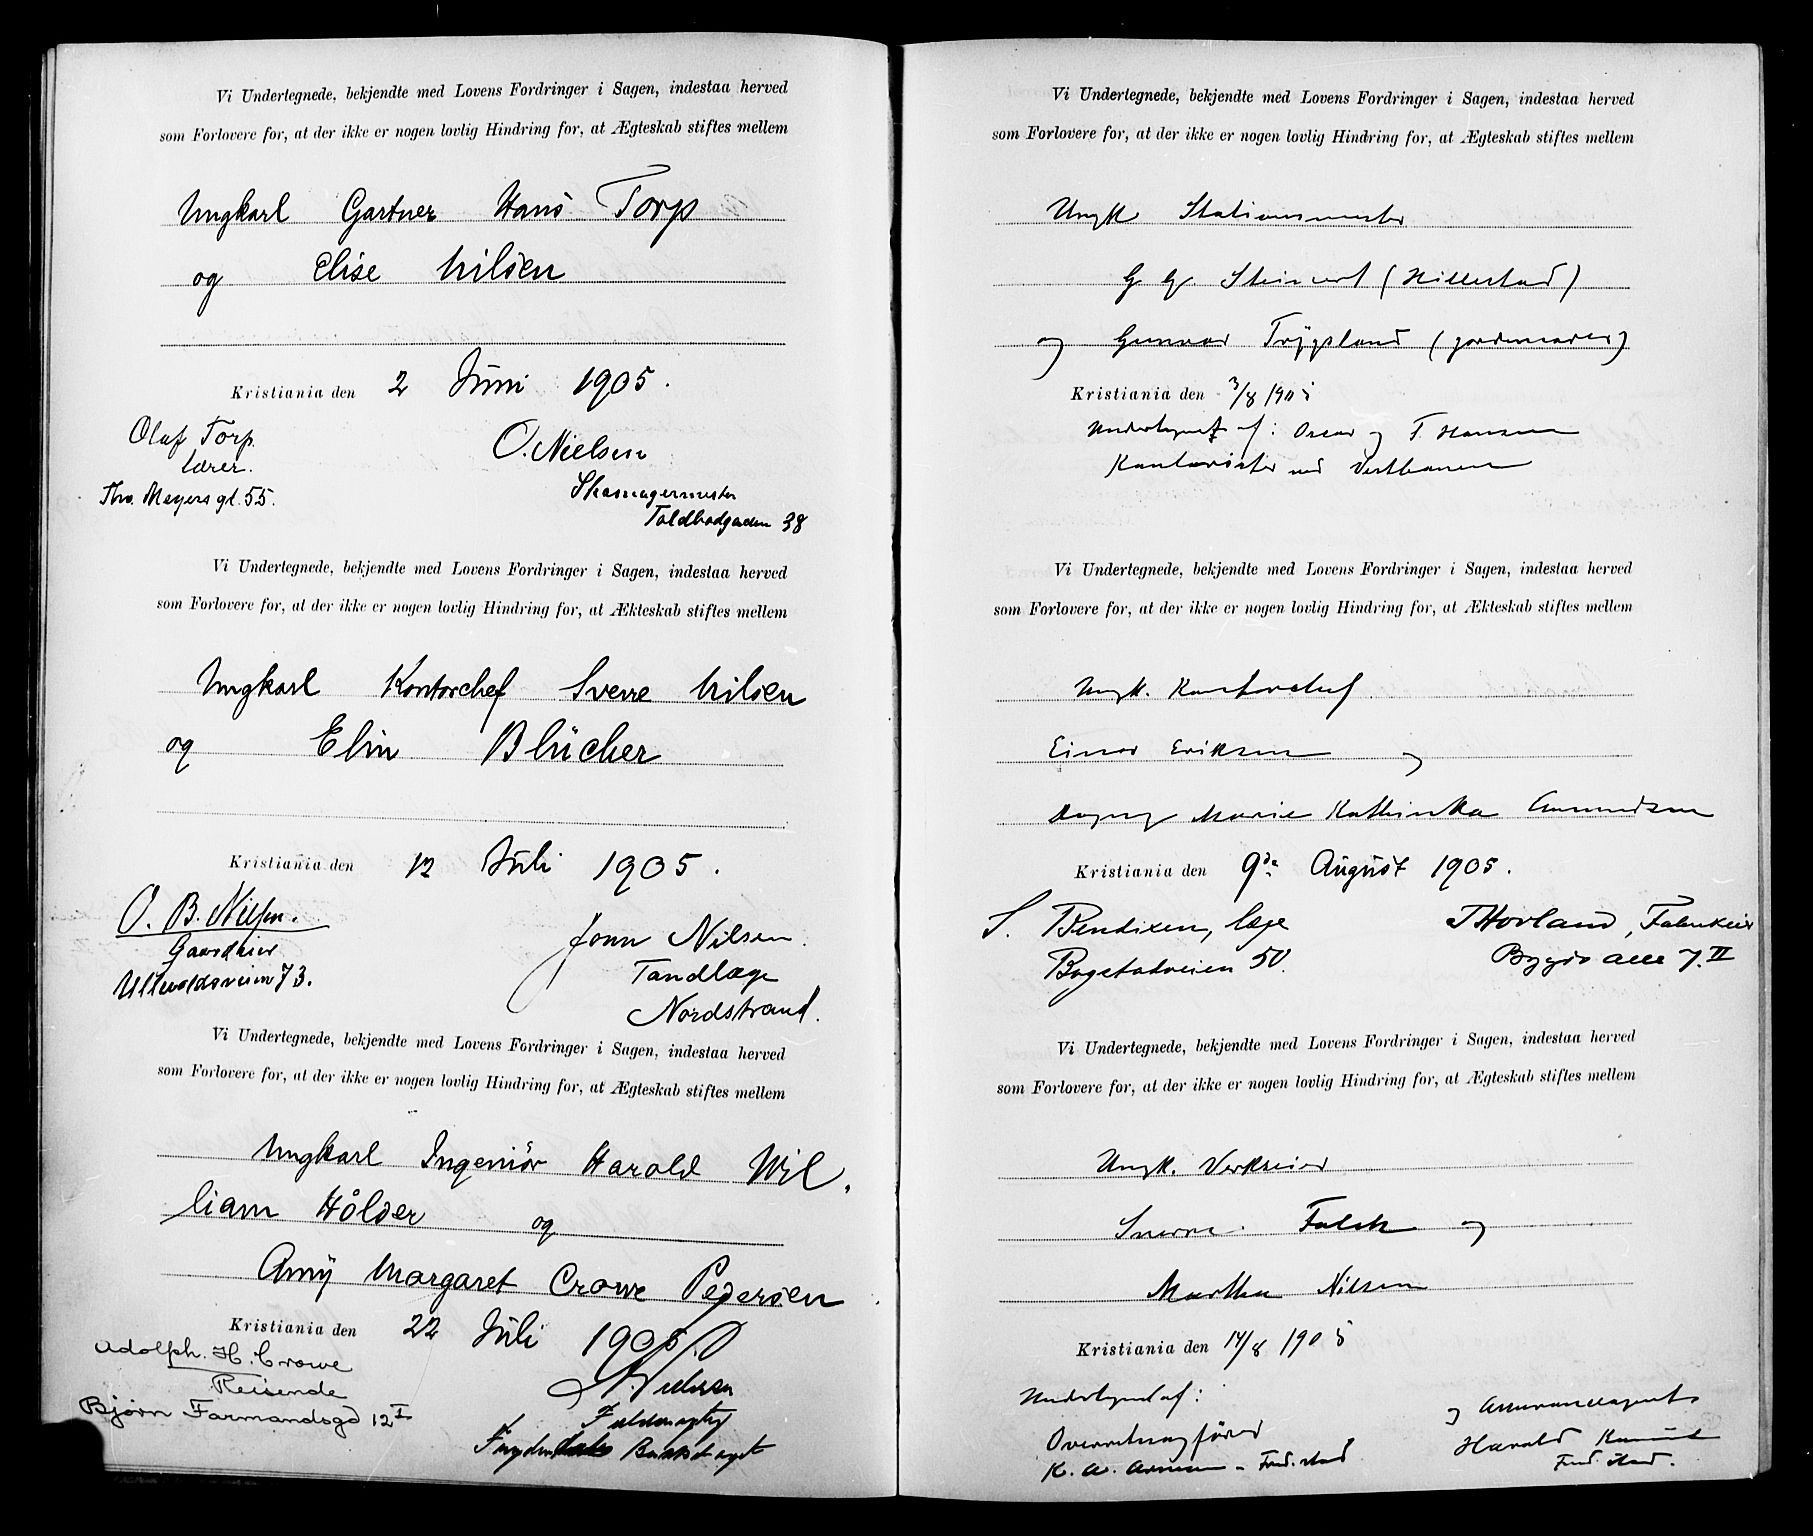 Vi Undertegnede, bekjendte med Lovens Fordringer i Sagen, indestaa herved
som Forlovere for, at der ikke er nogen lovlig Hindring for, at Ægteskab stiftes mellem
Ungkarl Gartner Hans Torp
og Elise Nilsen
Kristiania den 2 Juni 1905.
Olaf Torp
lærer.
Ths. Meyers gt. 55.
O. Nielsen
Skomagermester
Toldbodgaden 38
Vi Undertegnede, bekjendte med Lovens Fordringer i Sagen, indestaa herved
som Forlovere for, at der ikke er nogen lovlig Hindring for, at Ækteskab stiftes mellem
Ungkarl Kontorchef Sverre Nilsen
og Elin Blücher
Kristiania den 12 Juli 1905.
O. B. Nilsen.
Gaardeier
Ullevoldsveien 73.
John Nilsen.
Tandlæge
Nordstrand.
Vi Undertegnede, bekjendte med Lovens Fordringer i Sagen, indestaa herved
som Forlovere for, at der ikke er nogen lovlig Hindring for, at Ægteskab stiftes mellem
Ungkarl Ingeniör Harold Wil
liam Hólder og
Amy Margaret Crowe Pedersen
Kristiania den 22 Juli 1905.
Adolph. H. Crowe
Reisende
Bjørn Farmandsgd 12 I
Vi Undertegnede, bekjendte med Lovens Fordringer i Sagen, indestaa herved
som Forlovere for, at der ikke er nogen lovlig Hindring for, at Ægteskab stiftes mellem
Ungk Stationsmester
G G Steinert (Hillestad)
og Gunvor Trygsland (jordemoder)
Kristiania den 3/8 1905
Undertegnet af: Oscar og T. Hansen
Kontorister ved Vestbanen
Vi Undertegnede, bekjendte med Lovens Fordringer i Sagen, indestaa herved
som Forlovere for, at der ikke er nogen lovlig Hindring for, at Ækteskab stiftes mellem
Ungk. Kontorchef
Einar Eriksen og
Dagny Marie Kathinka Amundsen
Kristiania den 9de August 1905.
S. Bendixen, læge
Bogstadveien 50.
T Hovland, Fabrikeier
Bygdø alle 7. II
Vi Undertegnede, bekjendte med Lovens Fordringer i Sagen, indestaa herved
som Forlovere for, at der ikke er nogen lovlig Hindring for, at Ægteskab stiftes mellem
Ungk. Verkseier
Snorre Falck og
Martha Nilsen
Kristiania den 14/8 1905
Undertegnet af:
Overretssagfører
K. A. - Fred.stad
og Assuranceagent
Harald
Fred.stad.